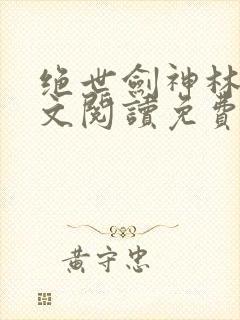 绝世劍神林
文閱讀免費
黃守忠